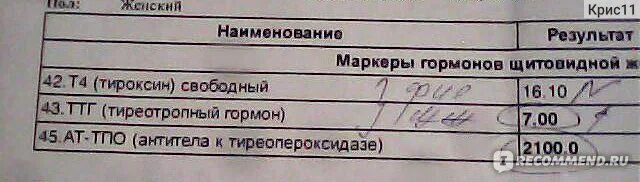 Крис11
Пол: Женский
Наименование Результат
Маркеры гормонов щитовидной ж
42.Т4 (тироксин) свободный 16.10 N
43.ТТГ (тиреотропный гормон) 7.00
45.АТ-ТПО (антитела к тиреопероксидазе) 2100.0
IRECOMMEND.RU